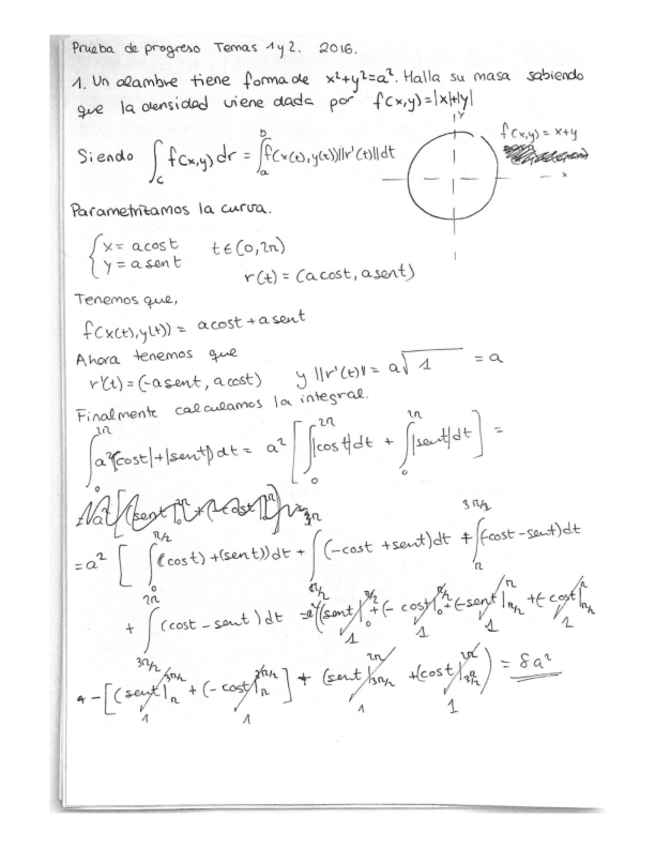 Prueba de progreso Temas 1 y 2. 2016.
1. Un alambre tiene forma de x²+y²=a². Halla su masa sabiendo
que la densidad viene dada por f(x,y)=|x|+|y|
y
f(x,y) = x+y
x
Siendo ∫_C f(x,y) dr = ∫_a^b f(x(t),y(t))||r'(t)||dt
Parametrizamos la curva.
{ x = a cost t∈(0,2π)
y = a sent
r(t) = (a cost, a sent)
Tenemos que,
f(x(t),y(t)) = a cost + a sent
Ahora tenemos que
r'(t) = (-a sent, a cost) y ||r'(t)|| = a√1 = a
Finalmente calculamos la integral.
∫_0^2π a²(|cost|+|sent|) dt = a² [ ∫_0^2π |cost|dt + ∫_0^2π |sent|dt ] =
= a² [ ∫_0^π/2 (cost)+(sent))dt + ∫ (-cost + sent)dt + ∫_π^3π/2 (-cost - sent)dt
+ ∫_3π/2^2π (cost - sent)dt = a²((sent|_0^π/2 + (-cost|_0^π/2 + (-sent|_π/2^π + (-cost|_π/2^π
1 1 1 1
+ -[(sent|_π^3π/2 + (-cost|_π^3π/2] + (sent|_3π/2^2π + (cost|_3π/2^2π) = 8a²
1 1 1 1